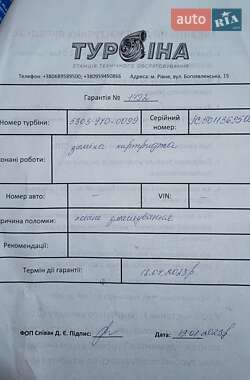 AUTO.RIA
ТУРБІНА
СТАНЦІЯ ТЕХНІЧНОГО ОБСЛУГОВУВАННЯ
Телефон: +380689589500; +380959490866 Адреса: м. Рівне, вул. Богоявленська, 15
Гарантія № 1192
Номер турбіни: 5303-970-0099 Серійний номер:
онані роботи: заміна картриджа
Номер авто: – VIN: –
ричина поломки:
Рекомендації:
Термін дії гарантії:
ФОП Співак Д. Є. Підпис: Дата: